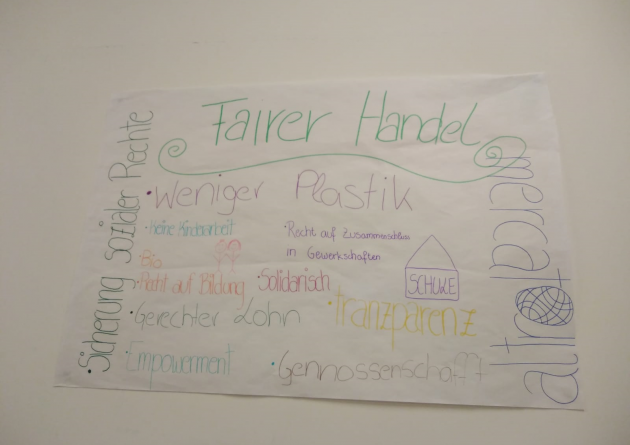 Fairer Handel
• Sicherung sozialer Rechte
• Weniger Plastik
• Keine Kinderarbeit
• Recht auf Zusammenschluss
in Gewerkschaften
• Bio
• Recht auf Bildung
• Solidarisch
SCHULE
• Gerechter Lohn
• Tranzparenz
• Empowerment
• Gennossenschafft
mercal
alTORTt